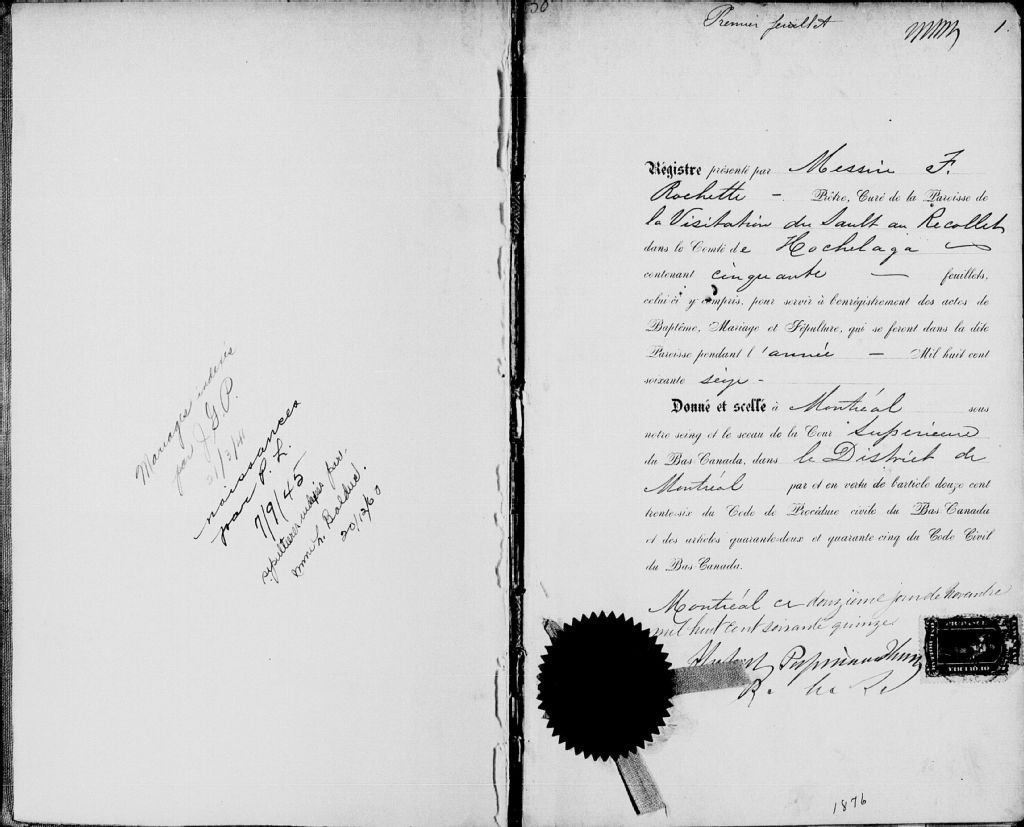 Mariages indexés
par J. G. P.
21/3/41
naissances
par P. L.
7/9/45
sépultures indexées par
mme L. Balduc.
20/12/60
50
Premier feuillet
1.
Régistre présenté par Messire F.
Rochette - Prêtre, Curé de la Paroisse de
la Visitation du Sault au Recollet
dans le Comté de Hochelaga
contenant cinquante — feuillets,
celui-ci y compris, pour servir à l'enrégistrement des actes de
Baptême, Mariage et Sépulture, qui se feront dans la dite
Paroisse pendant l'année — Mil huit cent
soixante seize -
Donné et scellé à Montréal sous
notre seing et le sceau de la Cour Supérieure
du Bas-Canada, dans le District de
Montréal par et en vertu de l'article douze cent
trente-six du Code de Procédure civile du Bas-Canada
et des articles quarante-deux et quarante-cinq du Code Civil
du Bas-Canada.
Montréal ce douzième jour de Novembre
mil huit cent soixante quinze
Hubert Papineau Honey
1876